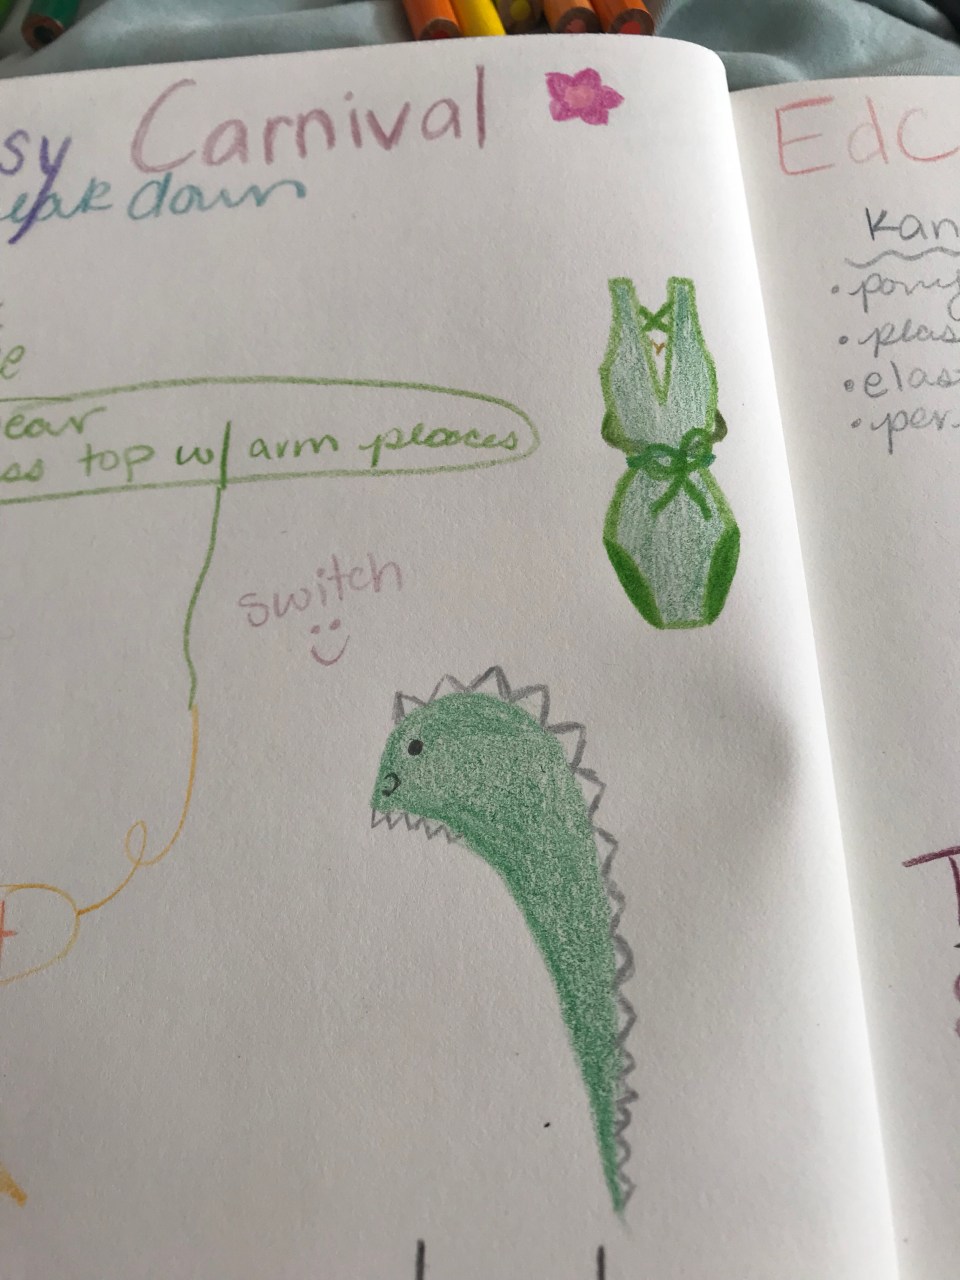 sy Carnival
eakdown
e
ear
ss top w/ arm places
switch
EdC
Kan
• pony
• plas
• elas
• per